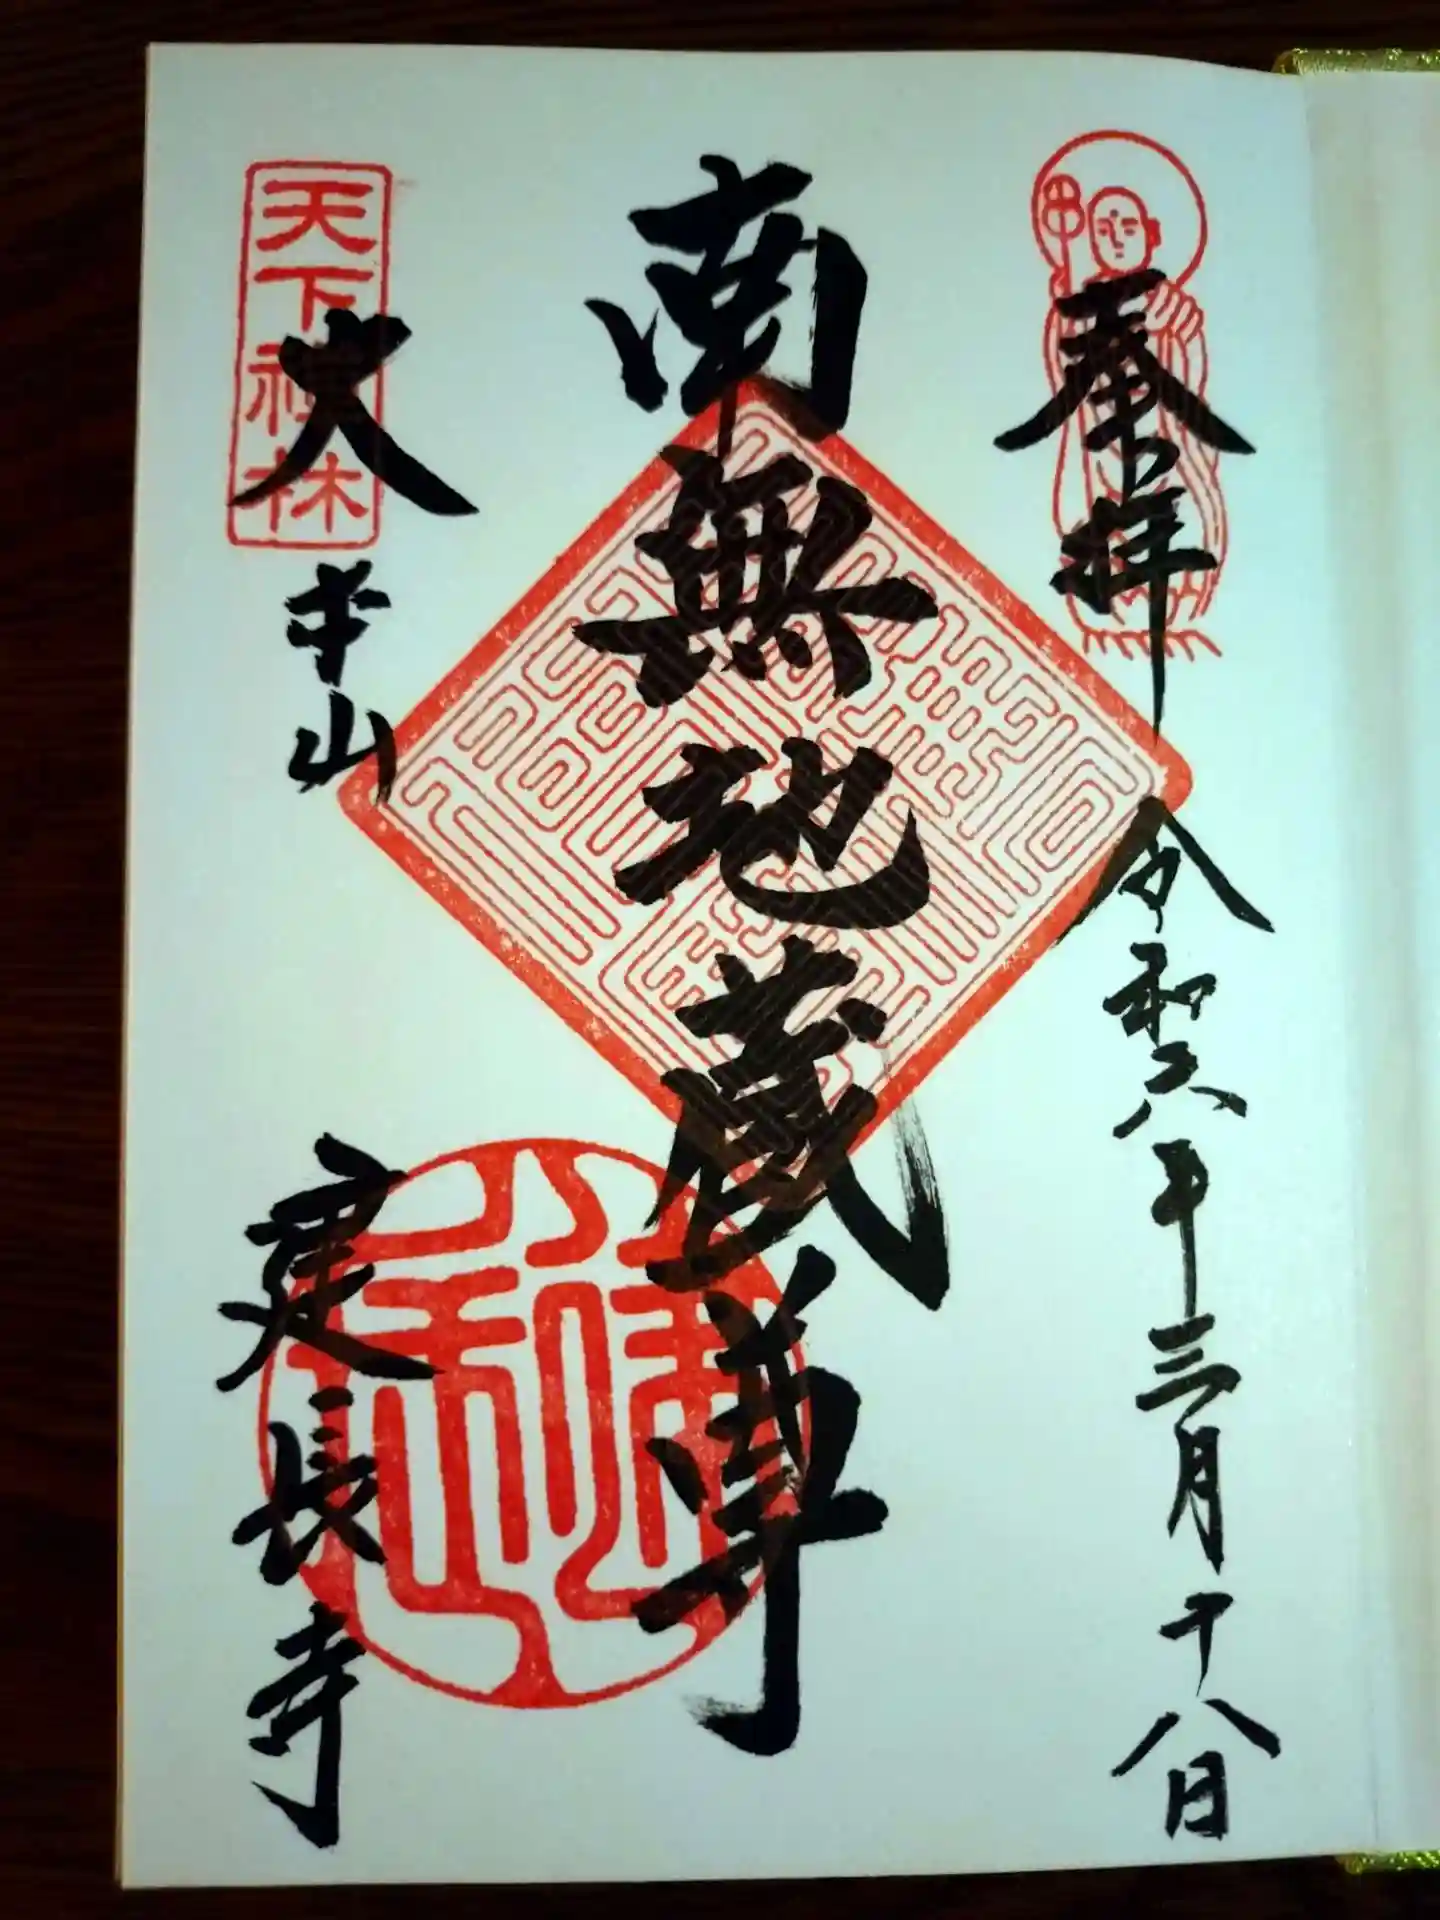 奉拝
令和六年三月十八日
南無地蔵尊
天下禅林
大本山
建長寺